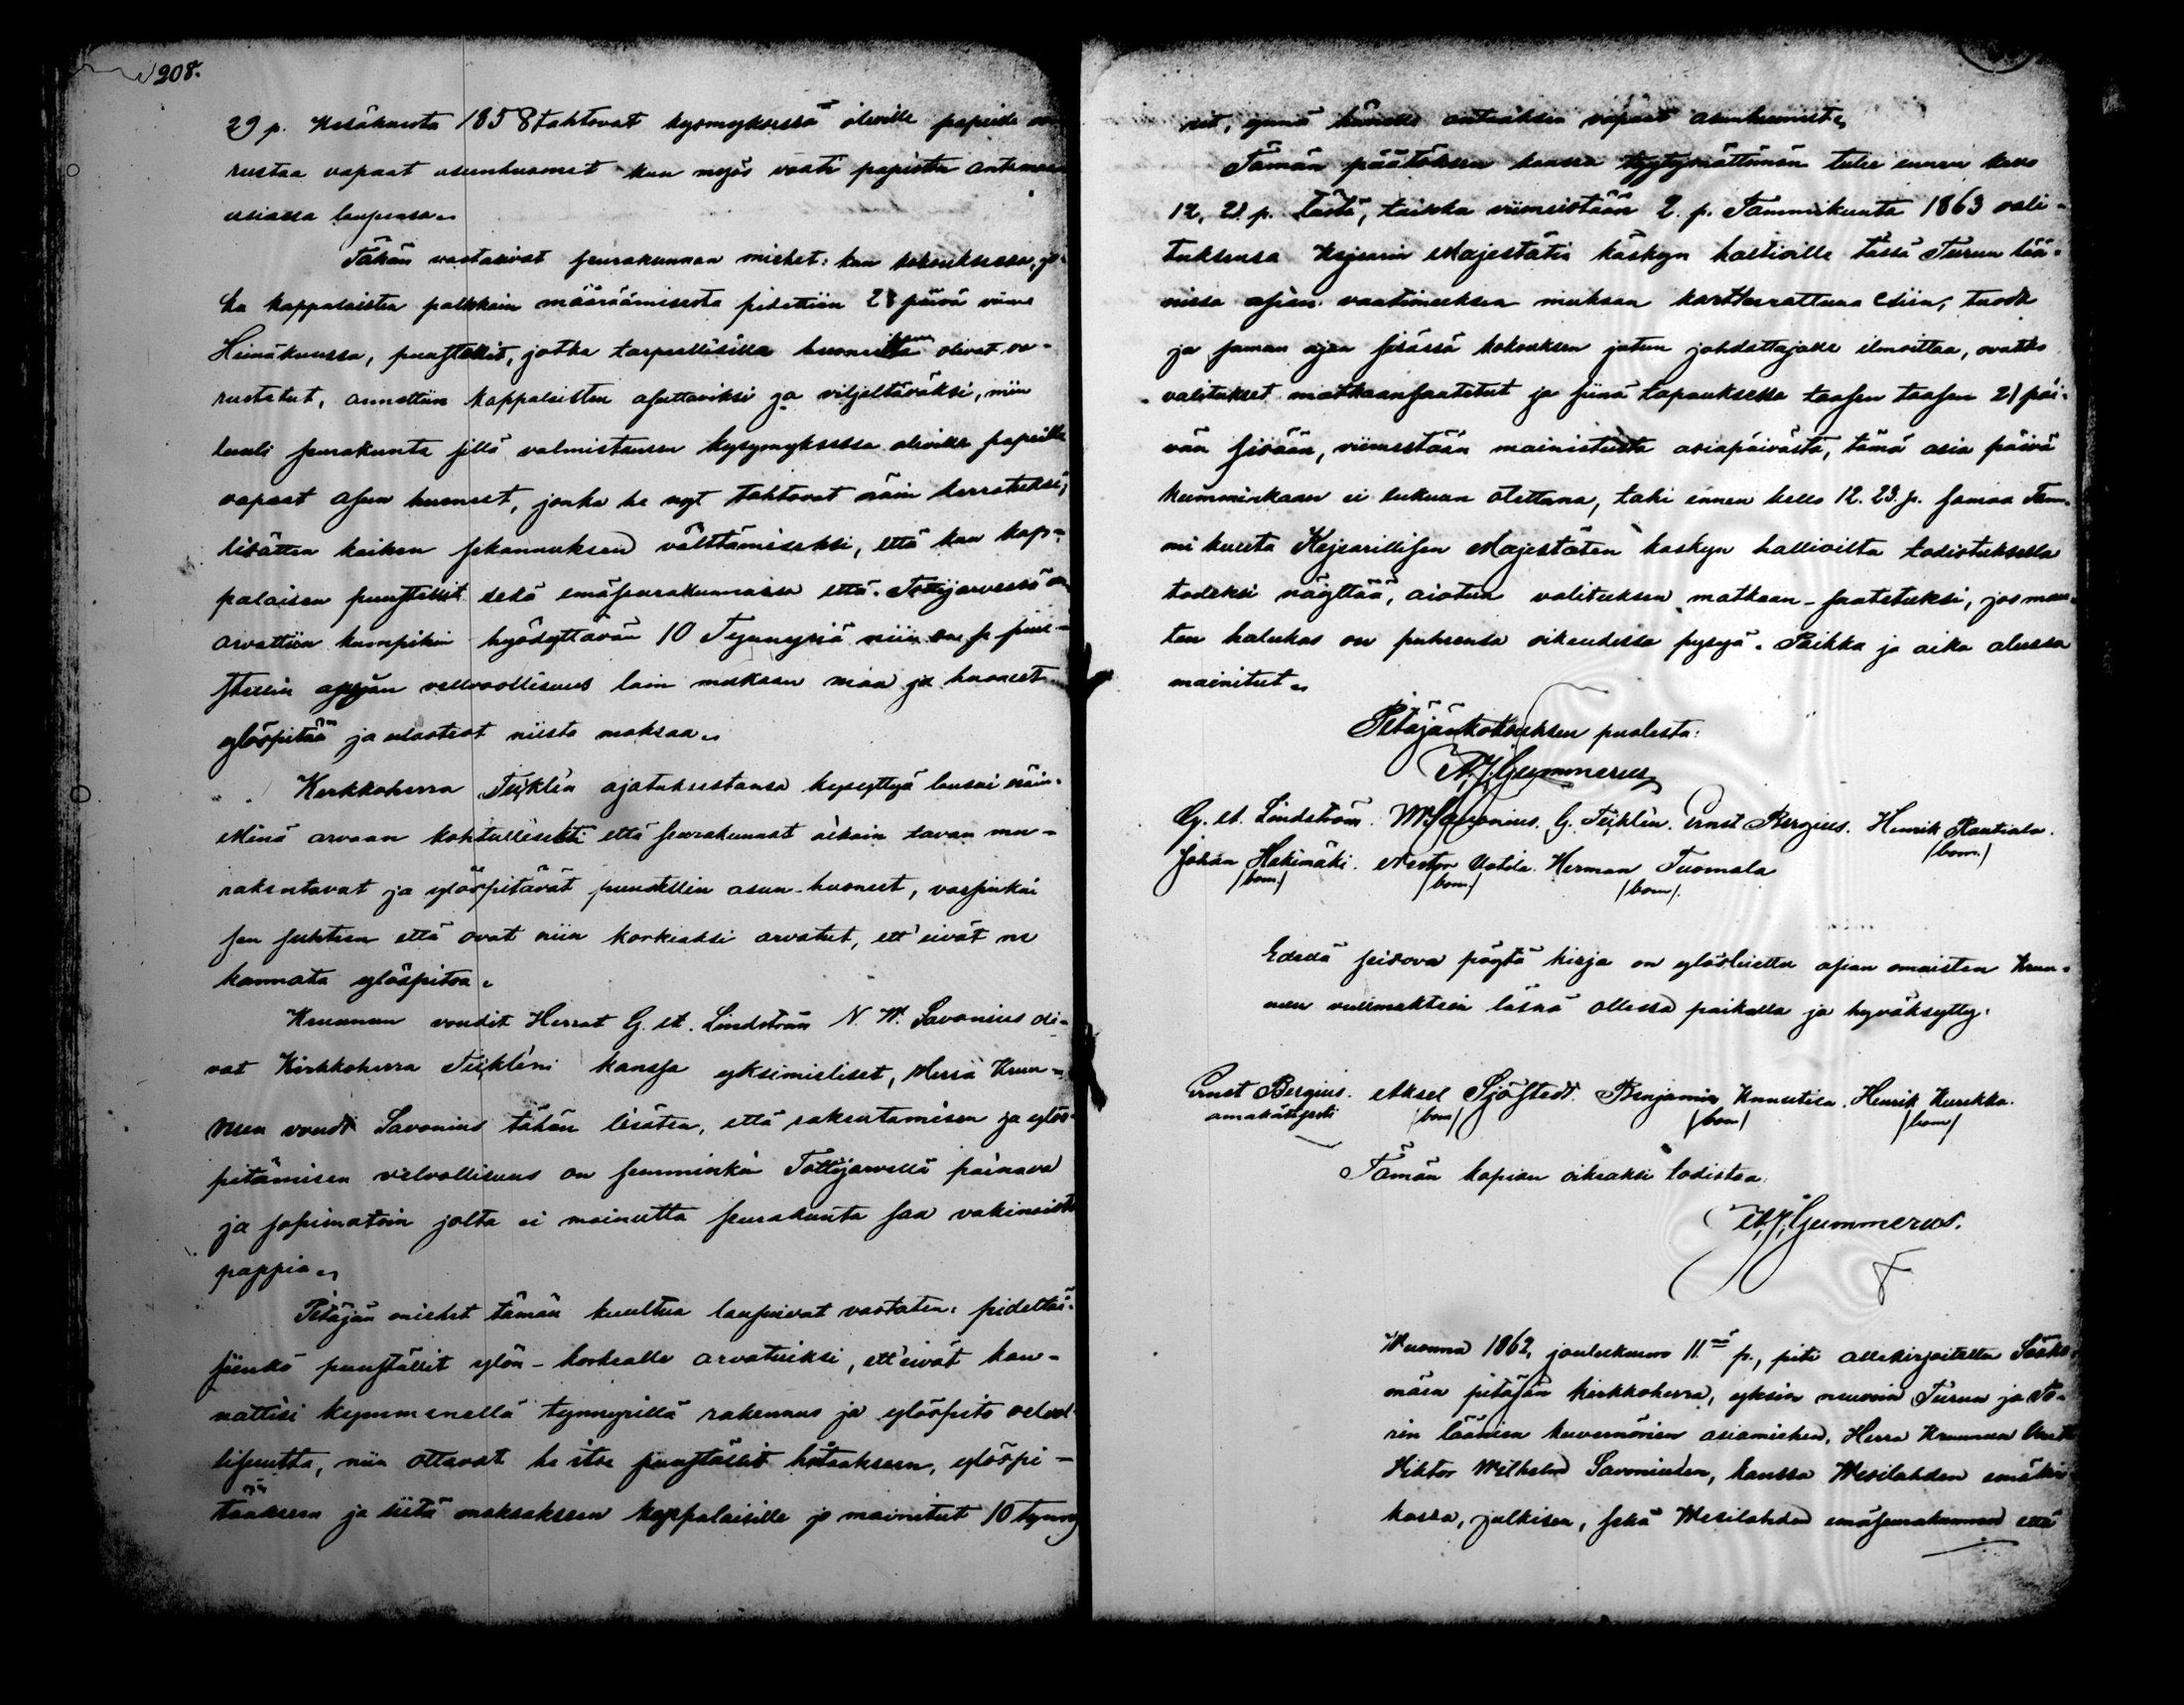 208.
29 p. Kesäkuuta 1858 tahtovat kysymyksessä oleville papeille va-
rustaa vapaat asuinhuoneet kun myös vaati papista antamaan
asiassa lausensa.
Tähän vastasivat seurakunnan miehet: kun kokouksessa, jo-
ka kappalaisten palkkain määräämisestä pidettiin 28 päivä viime
Heinäkuussa, puustellit, jotka tarpeellisilla huoneilla olivat va-
rustetut, annettiin kappalaisten asuttaviksi ja viljeltäväksi, niin
luuli seurakunta sillä valmistaneen kysymyksessä oleville papeille
vapaat asun huoneet, jonka he nyt tahtovat näin kerrotuksi,
lisäten kaiken sekannuksen välttämiseksi, että kun kap-
palaisen puustellit sekä emäseurakunnassa että Tottijärvessä on
arvattiin kumpikin hyödyttävän 10 Tynnyriä niin on se puu-
stellin asujan velvoollisuus lain mukaan maa ja huoneet
ylöspitää ja ulosteot niistä maksaa.
Kirkkoherra Tüjklén ajatuksestansa kysyttyä lausui näin:
Minä arvaan kohtullisesti että seurakunnat oikein tavan mu-
rakentavat ja ylöspitävät puustellin asun-huoneet, varsinkin
sen suhteen että ovat niin korkeaksi arvatut, ett'eivät ne
kannata ylöspitoa.
Kruunun voudit Herrat G. A. Lindström N. W. Savonius oli-
vat Kirkkoherra Tüjklén'i kanssa yksimieliset, Herra Kruu-
nun voudt Savonius tähän lisäten, että rakentamisen ja ylös-
pitämisen velvollisuus on semminkin Tottijarvellä painava
ja sopimatoin jolta ei mainittu seurakunta saa vakinaista
pappia.
Pitäjän miehet tämän kuultua lausuivat vastaten: pidettäi-
siinkö puuställit ylön-korkealle arvatuiksi, ett'eivät kan-
nattisi kymmenellä tynnyrillä rakennus ja ylöspito velvol-
lisuutta, niin ottavat he itse puuställit hoitaakseen, ylöspi-
tääkseen ja siitä maksakseen kappalaisille jo mainitut 10 tynny
rit, ynnä hänelle antaaksen vapaat asunhuoneet.
Tämän päätöksen kanssa tyytymättömän tulee ennen kello
12, 21. p. tästä, taikka viimeistään 2. p. Tammikuuta 1863 vali-
tuksensa Keisarin Majestätin käskyn haltioille tässä Turun lää-
nissa asian vaatimuksen mukaan karttarattuna ediin, tuoda
ja saman ajan sisässä kokouksen jutun johdattajalle ilmoittaa, ovatko
valitukset matkaansaatetut ja siinä tapauksessa taasen taasen 21 päi-
vän sisään, viimestään mainitusta asiapäivästä, tämä asia päivä
kumminkaan ei lukuun otettuna, taki ennen kello 12. 23. p. samaa Tam-
mikuuta Kejsarillisen Majestäten käskyn hallioilta todistuksella
todeksi näyttää, aiotun valituksen matkaan-saatetuksi, jos muu-
ten halukas on puhensa oikeudessa pysyä. Paikka ja aika alussa
mainitut.
Pitäjänkokouksen puolesta:
A. J. Gummerus
G. A. Lindström. W. Savonius. G. Tüjklén. Ernst Bergius. Henrik Rautiala.
/bom./
Johan Hakimäki. Nestor Uotila. Herman Tuomala
/bom/ /bom/ /bom/.
Edellä seisova pöytä kirja on ylösluettu asian omaisten Kruu-
nun vullmaktien läsnä ollessa paikalla ja hyväksytty.
Ernst Bergius. Aksel Sjöstedt. Benjamin Knuutila. Henrik Kurikka.
omakätisesti /bom/ /bom/ /bom/
Tämän kopian oikeaksi todistaa:
A. J. Gummerus.
Wuonna 1862, joulukuun 11nä p., piti allekirjoitettu Sääks-
mäen pitäjän kirkkoherra, yksin neuvoin Turun ja Po-
rin läänien kuvernörien asiamiehen, Herra Kruunun Voudt
Hiktor Wilhelm Savoniuden, kanssa Wesilahden emäkir-
kossa, julkisen, sekä Wesilahden emäseurakunnan että